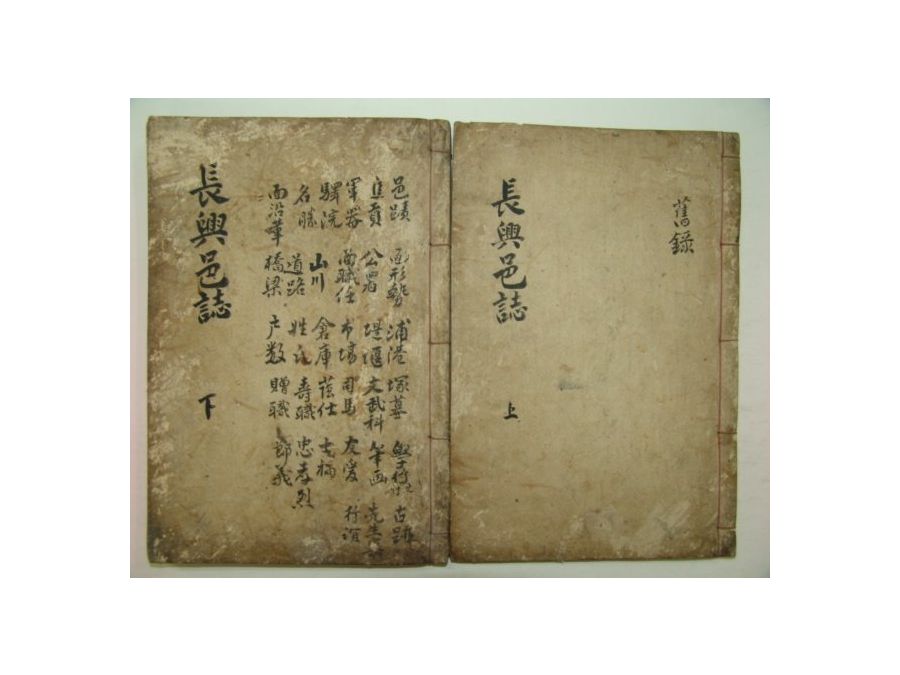 舊錄
長興邑誌
上
邑蹟 形勢 浦港 塚墓 學行 古跡
進貢 公署 堤堰 文武科 筆画
軍器 面職任 市場 司馬 友愛 行誼
驛院 山川 倉庫 蔭仕
名勝 道路 姓氏 壽職 忠孝烈
面沿革 橋梁 戶数 贈職 節義
長興邑誌
下